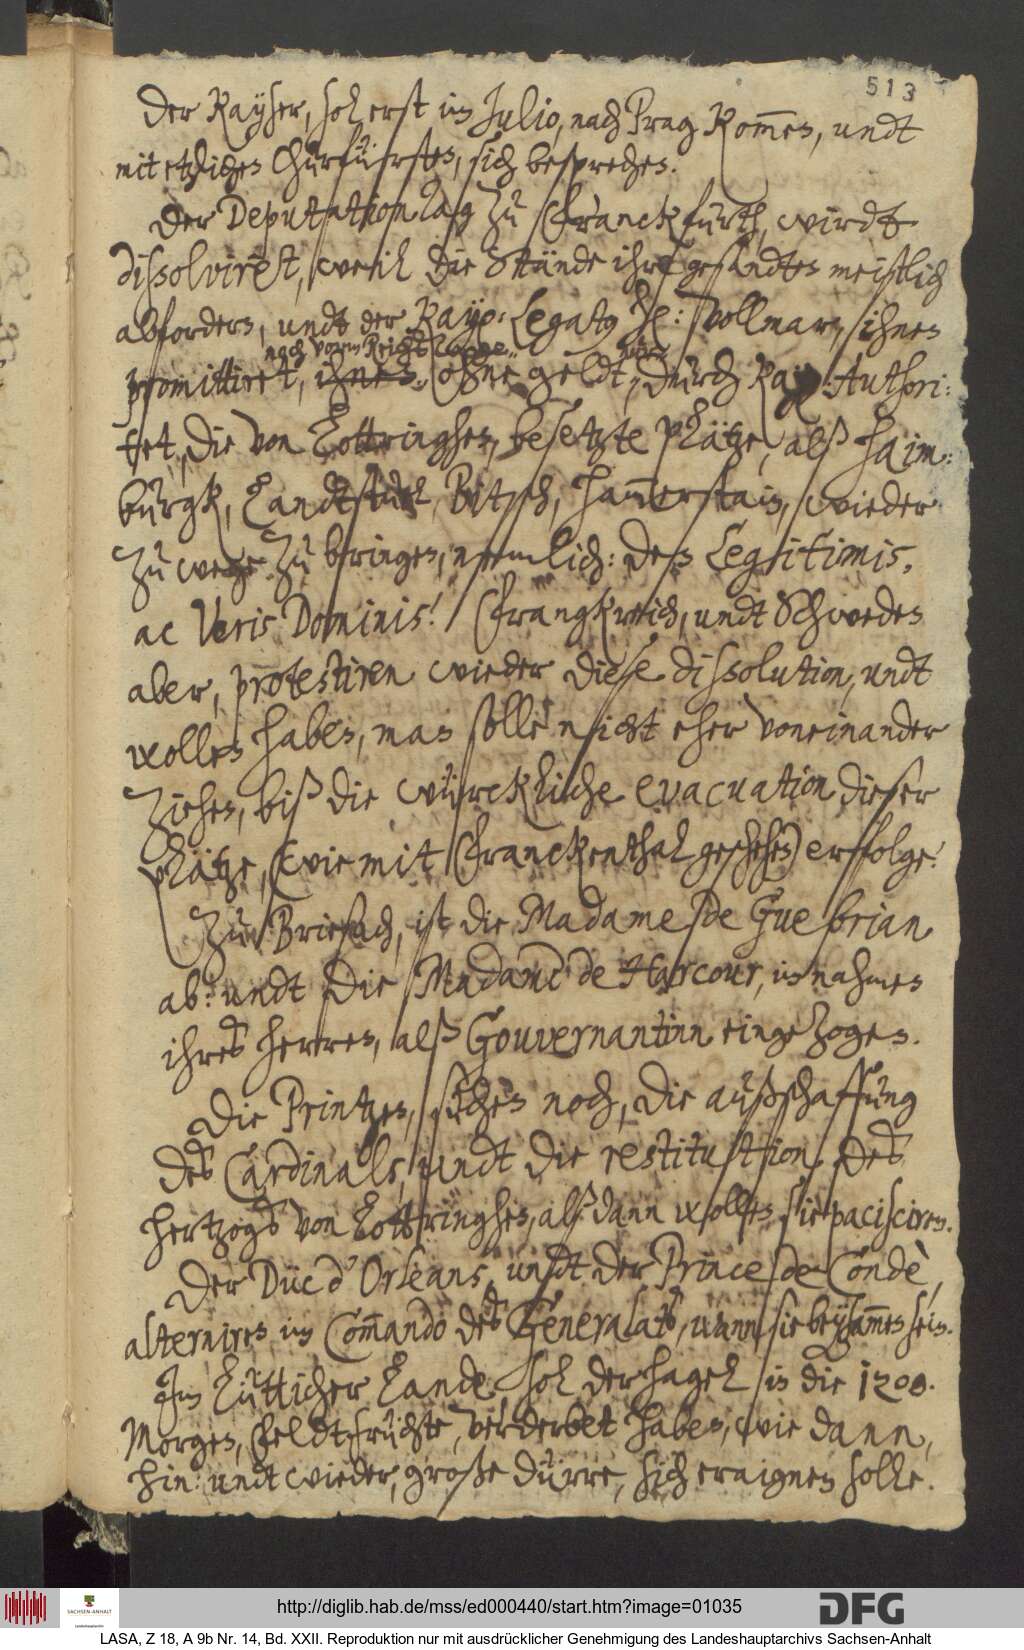 513
Der Kayser, sol erst im Julio, nach Prag kom̅en, undt
mit etzlichen Churfürsten, sich besprechen.
Der Deputation Tag zu Franckfurth, wirdt
dissolviret, weil die Stände ihre gesandten meistlich
abfordern, undt der Kays: Legatus H: Vollmar, ihnen
nach vorm Reichßtage
promittiret, ihnen, ohne geldt, durch Kay: Authori:
tet, die von Lottringhen, besetzte Plätze, alß Haim:
burgk, Landtstuel, Bitsch, Ham̅erstain, wieder
zu wege zu bringen, nemlich: den Legitimis,
ac Veris Dominis! Frangkreich, undt Schweden
aber, protestiren wieder diese dissolution, undt
wollen haben, man solle nicht eher voneinander
ziehen, biß die würckliche evacuation dieser
Plätze, (wie mit Franckenthal geschehen) erffolge.
Zu Brisach, ist die Madame de Guebrian
ab: undt die Madame de Harcour, im nahmen
ihres herren, alß Gouvernantinn eingezogen.
Die Printzen, suchen noch, die außschaffung
des Cardinals, undt die restitution des
Hertzogs von Lottringhen, alßdann wollen sie paciscirem.
Der Duc d'Orleans, undt der Prince de Condè,
alterniren im Com̅ando des Generalats, wann sie beysam̅en sein.
Im Lütticher Lande sol der hagel in die 1200.
Morgen, Feldtfrüchte, verderbet haben, wie dann,
hin: undt wieder, große dürre, sich eraignen solle.
http://diglib.hab.de/mss/ed000440/start.htm?image=01035
SACHSEN-ANHALT
Landeshauptarchiv
DFG
LASA, Z 18, A 9b Nr. 14, Bd. XXII. Reproduktion nur mit ausdrücklicher Genehmigung des Landeshauptarchivs Sachsen-Anhalt